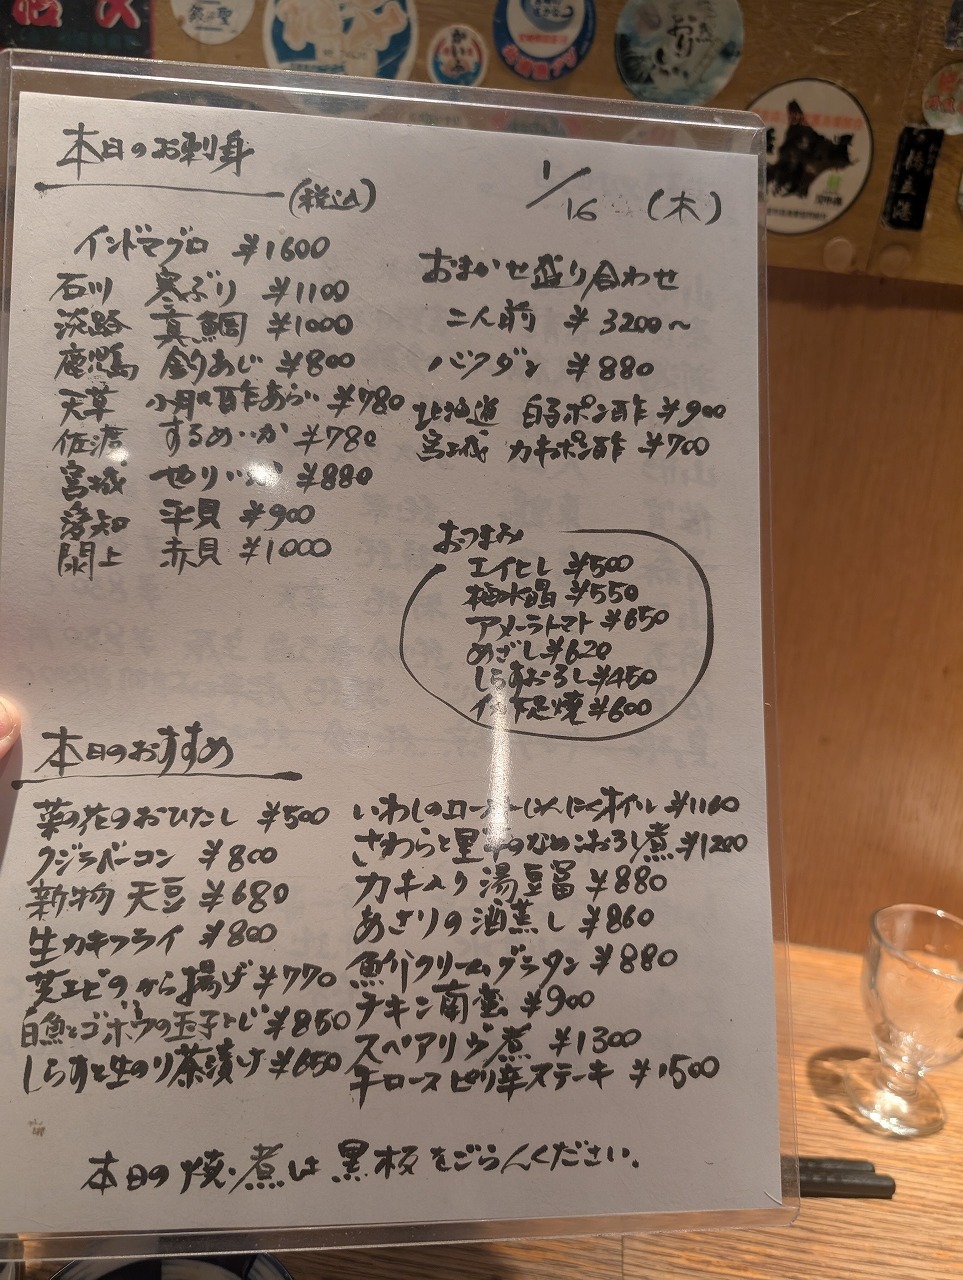 本日のお刺身
(税込)
1/16 (木)
インドマグロ ¥1600
石川 寒ぶり ¥1100
淡路 真鯛 ¥1000
鹿児島 釣あじ ¥800
天草 小肌酢あらい ¥780
佐渡 するめいか ¥780
宮城 やりいか ¥880
愛知 平貝 ¥900
閖上 赤貝 ¥1000
おまかせ盛り合わせ
二人前 ¥3200〜
バクダン ¥880
北海道 白子ポン酢 ¥900
宮城 カキポン酢 ¥700
おつまみ
エイヒレ ¥500
梅水晶 ¥550
アメーラトマト ¥650
めざし ¥620
しらすおろし ¥450
イカ下足焼 ¥600
本日のおすすめ
菜の花のおひたし ¥500
クジラベーコン ¥800
新物 天豆 ¥680
生カキフライ ¥800
芝エビのから揚げ ¥770
白魚とゴボウの玉子とじ ¥850
しらすと生のり茶漬け ¥650
いわしのローストにんにくオイル ¥1160
さわらと里芋のなめこおろし煮 ¥1200
カキ入り湯豆冨 ¥880
あさりの酒蒸し ¥860
魚介クリームグラタン ¥880
チキン南蛮 ¥900
スペアリブ煮 ¥1300
牛ロースピリ辛ステーキ ¥1500
本日の焼・煮は黒板をごらんください。